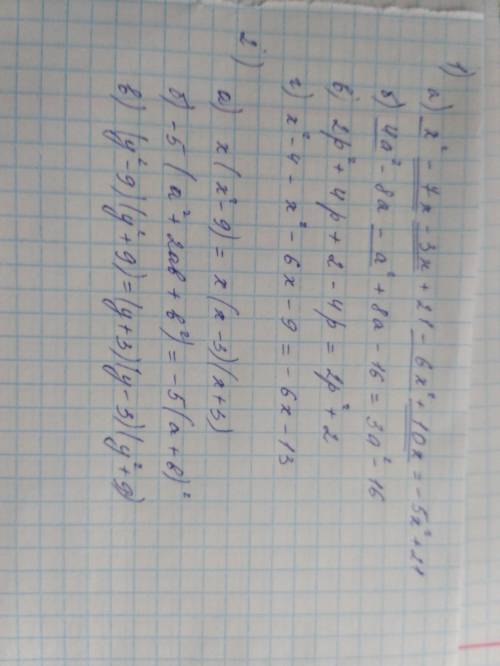 1)
а) x² - 7x - 3x + 21 - 6x² + 10x = -5x² + 21
б) 4a² - 8a - a² + 8a - 16 = 3a² - 16
в) 2p² + 4p + 2 - 4p = 2p² + 2
г) x² - 4 - x² - 6x - 9 = -6x - 13
2)
а) x(x² - 9) = x(x - 3)(x + 3)
б) -5(a² + 2ab + b²) = -5(a + b)²
в) (y² - 9)(y² + 9) = (y + 3)(y - 3)(y² + 9)